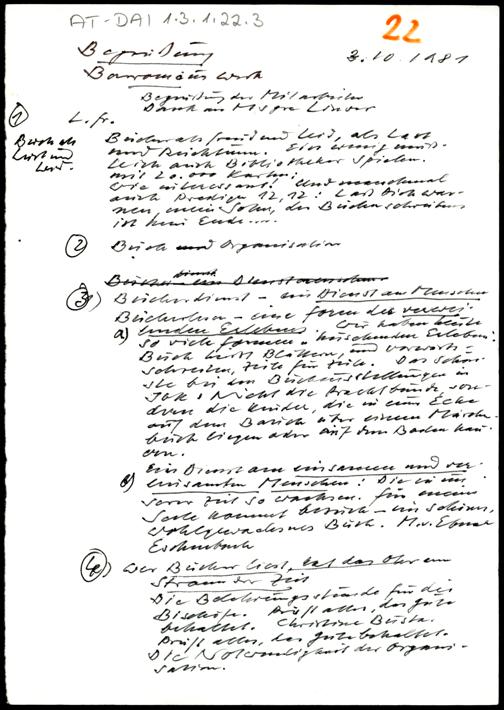 AT-DAI 1.3.1.22.3
22
Begrüßung
3.10.1981
Borromäuswerk
Begrüßung der Mitarbeiter
Dank an Msgre Linser
① L. Fr.
Buch als
Lust und
Leid.
Bücher als Freud und Leid, als Last
und Reichtum. Ein wenig muß
ich auch Bibliothekar spielen.
mit 20.000 Karten:
Wie interessant! Und manchmal
auch Prediger 12,12: Laß Dich war-
nen, mein Sohn, des Bücherschreibens
ist kein Ende...
② Buch und Organisation
③ Bücherdienst - ein Dienst am Menschen
Bücherlesen - eine Form des verwei-
a) lenden Erlebens. Wir haben heute
so viele Formen huschenden Erlebens:
Buch heißt Blättern, und vorwärts-
schreiten, Zeile für Zeile. Das Schön-
ste bei den Buchausstellungen in
Ibk: Nicht die Prachtbände, son-
dern die Kinder, die in einer Ecke
auf dem Bauch über einem Märchen-
buch liegen oder auf dem Boden kau-
ern.
Ein Dienst am einsamen und ver-
einsamten Menschen: Die in un-
serer Zeit so wachsen. Für meine
Seele kommt Besuch - ein schönes,
wohlgewachsenes Buch. M.v. Ebner
Eschenbach
④ Wer Bücher liest, hat das Ohr am
Strom der Zeit
Die Belehrungsstunde für die
Bischöfe. Prüft alles, das Gute
behaltet. Christine Busta.
Prüft alles, das Gute behaltet.
Die Notwendigkeit der Organi-
sation.